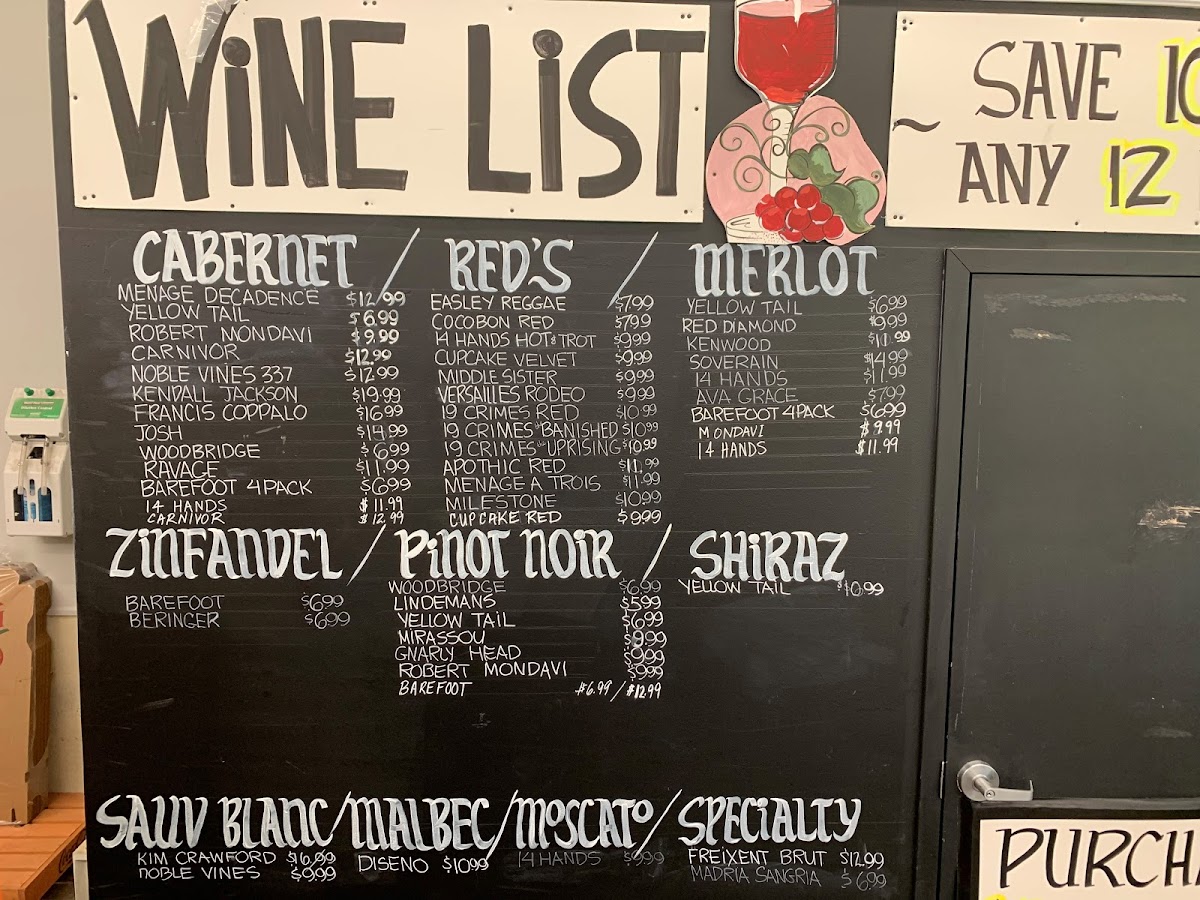 WiNE LiST
SAVE 10
ANY 12
CABERNET / RED'S / MERLOT
MENAGE DECADENCE $12.99
YELLOW TAIL $6.99
ROBERT MONDAVI $9.99
CARNIVOR $12.99
NOBLE VINES 337 $12.99
KENDALL JACKSON $19.99
FRANCIS COPPALO $16.99
JOSH $14.99
WOODBRIDGE $6.99
RAVAGE $11.99
BAREFOOT 4PACK $6.99
14 HANDS $11.99
CARNIVOR $12.99
EASLEY REGGAE $7.99
COCOBON RED $7.99
14 HANDS HOT to TROT $9.99
CUPCAKE VELVET $9.99
MIDDLE SISTER $9.99
VERSAILLES RODEO $9.99
19 CRIMES RED $10.99
19 CRIMES "BANISHED $10.99
19 CRIMES "UPRISING" $10.99
APOTHIC RED $11.99
MENAGE A TROIS $11.99
MILESTONE $10.99
CUPCAKE RED $9.99
YELLOW TAIL $6.99
RED DIAMOND $9.99
KENWOOD $11.99
SOVERAIN $14.99
14 HANDS $11.99
AVA GRACE $7.99
BAREFOOT 4PACK $6.99
MONDAVI $9.99
14 HANDS $11.99
ZiNFANDEL / PiNOT NOiR / SHiRAZ
BAREFOOT $6.99
BERINGER $6.99
WOODBRIDGE $6.99
LINDEMANS $5.99
YELLOW TAiL $6.99
MIRASSOU $9.99
GNARLY HEAD $9.99
ROBERT MONDAVI $9.99
BAREFOOT $6.99 / $12.99
YELLOW TAIL $10.99
SAUV BLANC / MALBEC / MOSCATO / SPECiALTY
KIM CRAWFORD $16.99
NOBLE VINES $9.99
DISENO $10.99
14 HANDS $9.99
FREIXENT BRUT $12.99
MADRIA SANGRIA $6.99
PURCHA